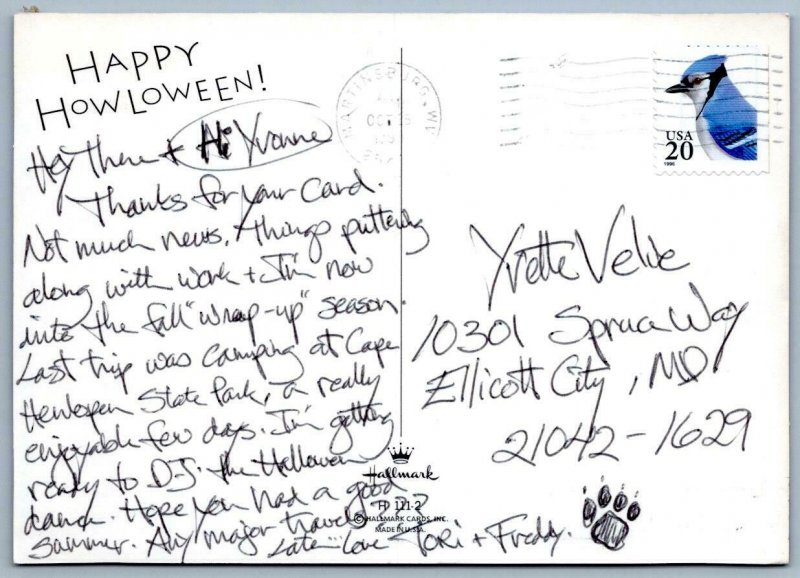 HAPPY
HOWLOWEEN!
MARTINSBURG WV
OCT 25
USA
20
1996
Hey There + Hi Yvonne
Thanks for your Card.
Not much news, things puttering
along with work + I'm now
into the fall "wrap-up" season.
Last trip was camping at Cape
Henlopen State Park, a really
enjoyable few days. I'm getting
ready to D.J. the Halloween
dance. Hope you had a good
summer. Any major travels
Late... Love Tori + Freddy.
Yvette Velie
10301 Spruce Way
Ellicott City, MD
21042-1629
Hallmark
H 111-2
© HALLMARK CARDS, INC.
MADE IN U.S.A.